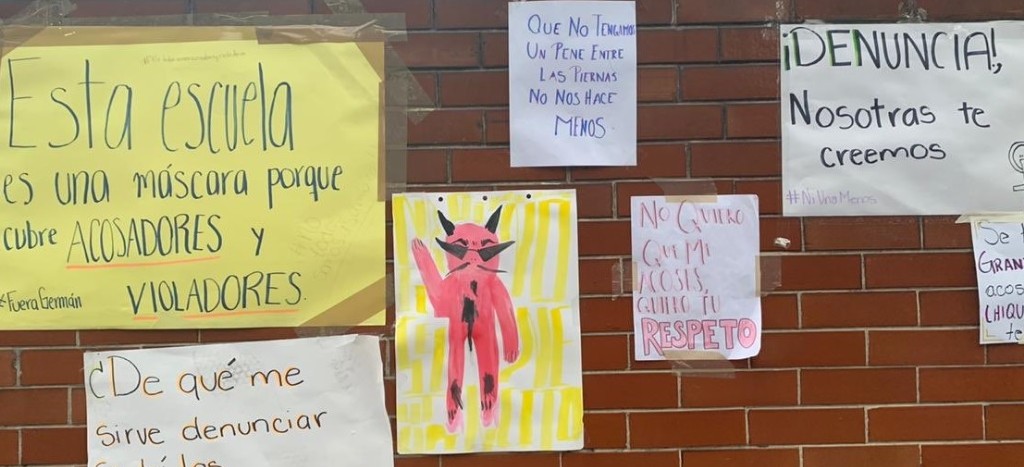 Esta escuela
es una máscara porque
cubre ACOSADORES y
VIOLADORES.
#FueraGermán
¿De qué me
sirve denunciar
QUE NO TENGAMOS
UN PENE ENTRE
LAS PIERNAS
NO NOS HACE
MENOS
NO QUIERO
QUE MI
ACOSES,
QUIERO TU
RESPETO
¡DENUNCIA!,
Nosotras te
creemos
#NiUnaMenos
Se
GRAN
acos
CHIQU
te